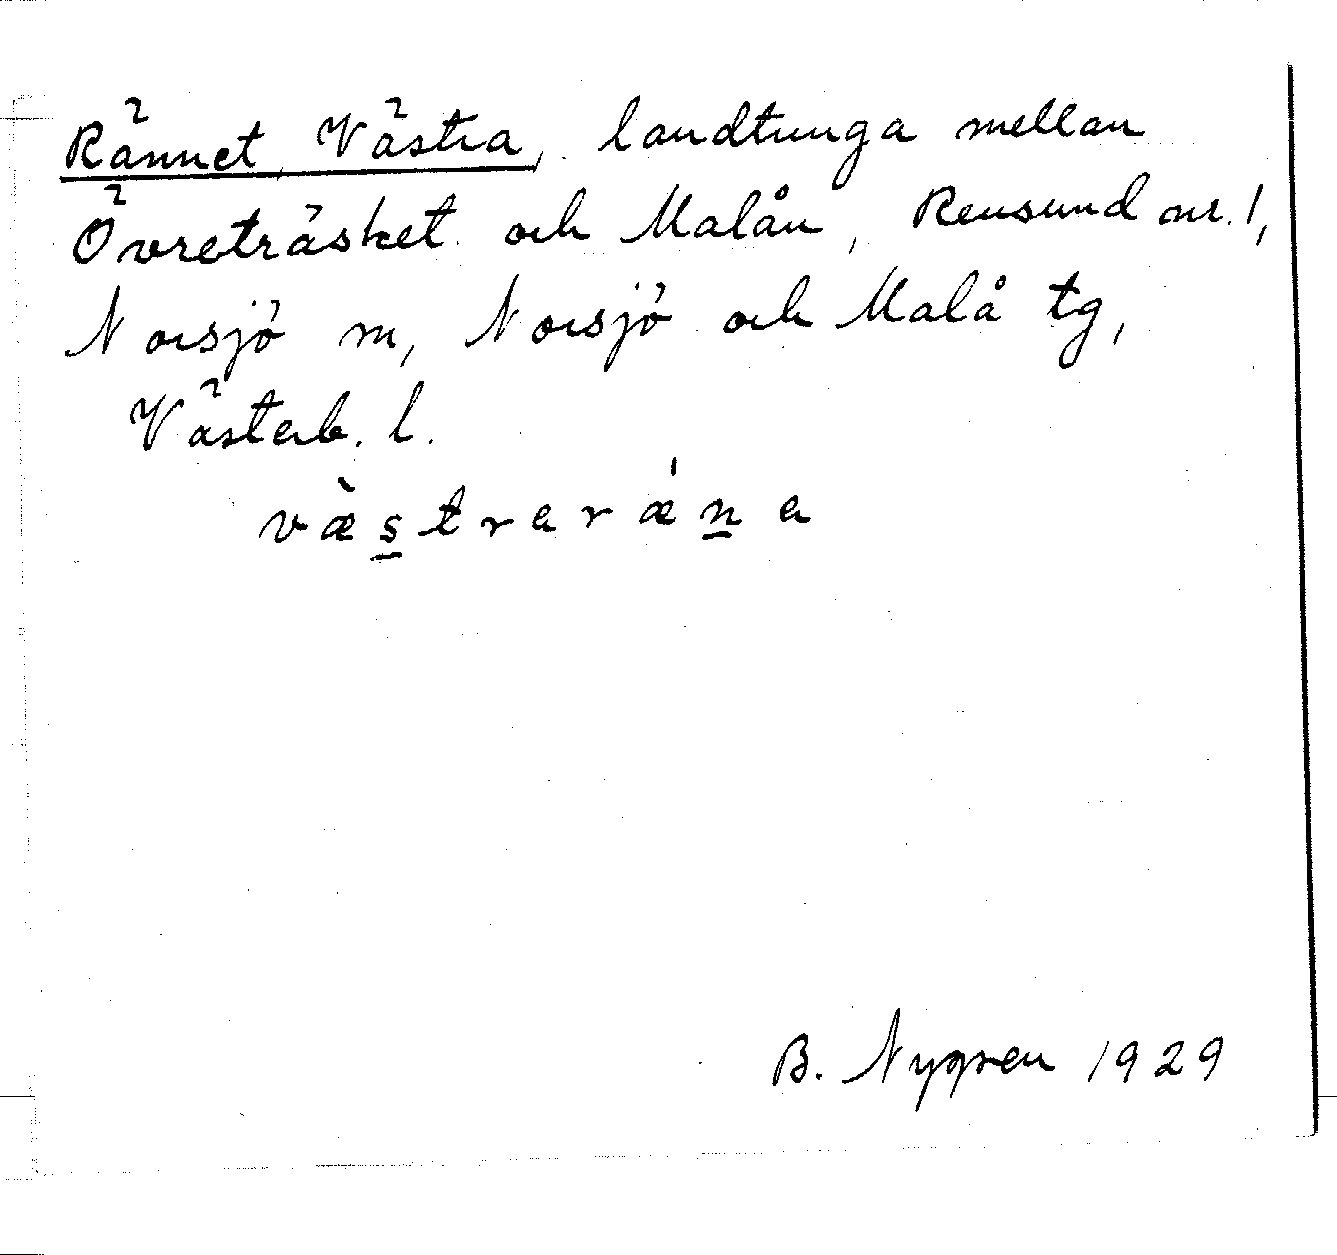 Rännet, Västra, landtunga mellan
Övreträsket och Malån, Rensund nr. 1,
Norsjö m, Norsjö och Malå tg,
Västerb. l.
væ̀streræ̍ne
B. Nygren 1929